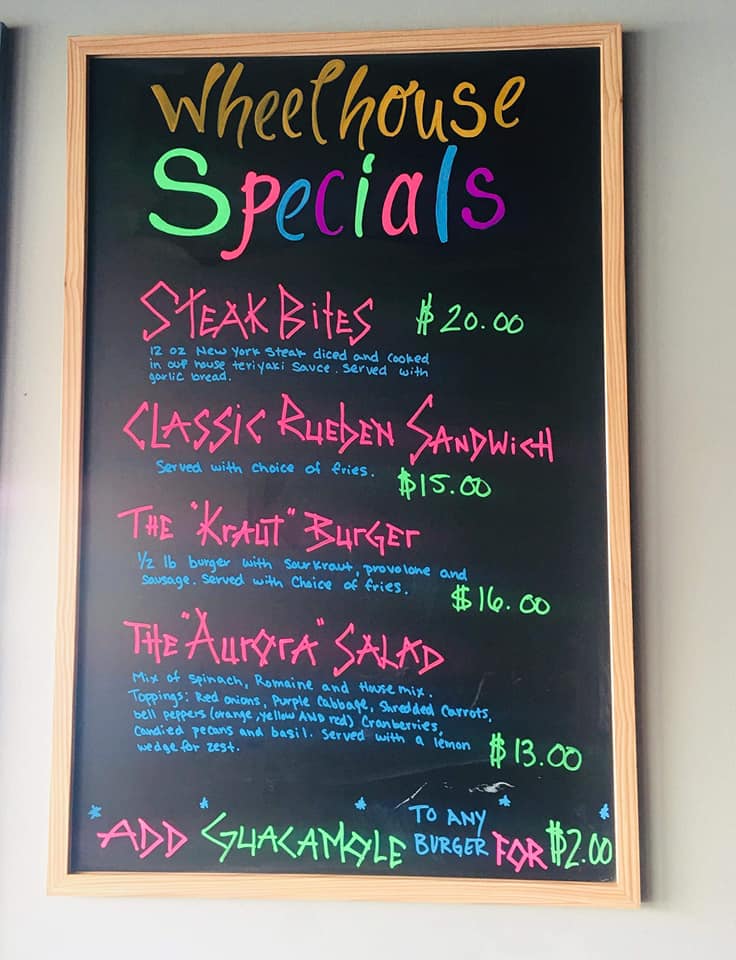 Wheelhouse
Specials
Steak Bites $20.00
12 oz New York Steak diced and cooked
in our house teriyaki sauce. Served with
garlic bread.
Classic Rueben Sandwich
Served with choice of fries. $15.00
The "Kraut" Burger
1/2 lb burger with sourkraut, provolone and
sausage. Served with choice of fries. $16.00
The "Aurora" Salad
Mix of spinach, Romaine and House mix.
Toppings: Red onions, purple Cabbage, Shredded Carrots,
bell peppers (orange, yellow AND red) Cranberries,
Candied pecans and basil. Served with a lemon
wedge for zest. $13.00
ADD GUACAMOLE TO ANY
BURGER FOR $2.00